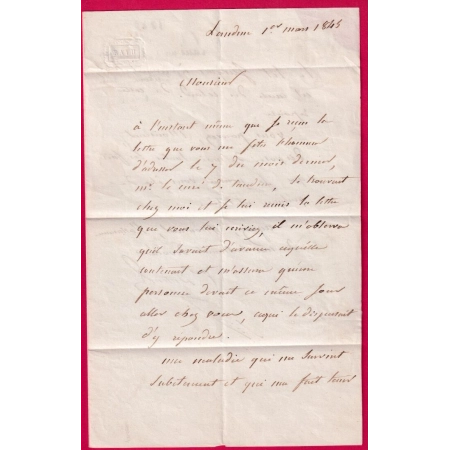 Landun 1er mars 1845
Monsieur
à l'instant même que Je reçois la
lettre que vous me faites l'honneur
d'adresser le 7 du mois dernier,
mr le maire de se trouvait
chez moi et Je lui remis la lettre
que vous lui , il m'observa
qu'il savait d'avance
contenait et m'assura qu'une
personne devait ce même Jour
aller chez vous, ce qui le dispensait
d'y repondre.
une maladie qui me survint
Subitement et qui m'a fait tenir